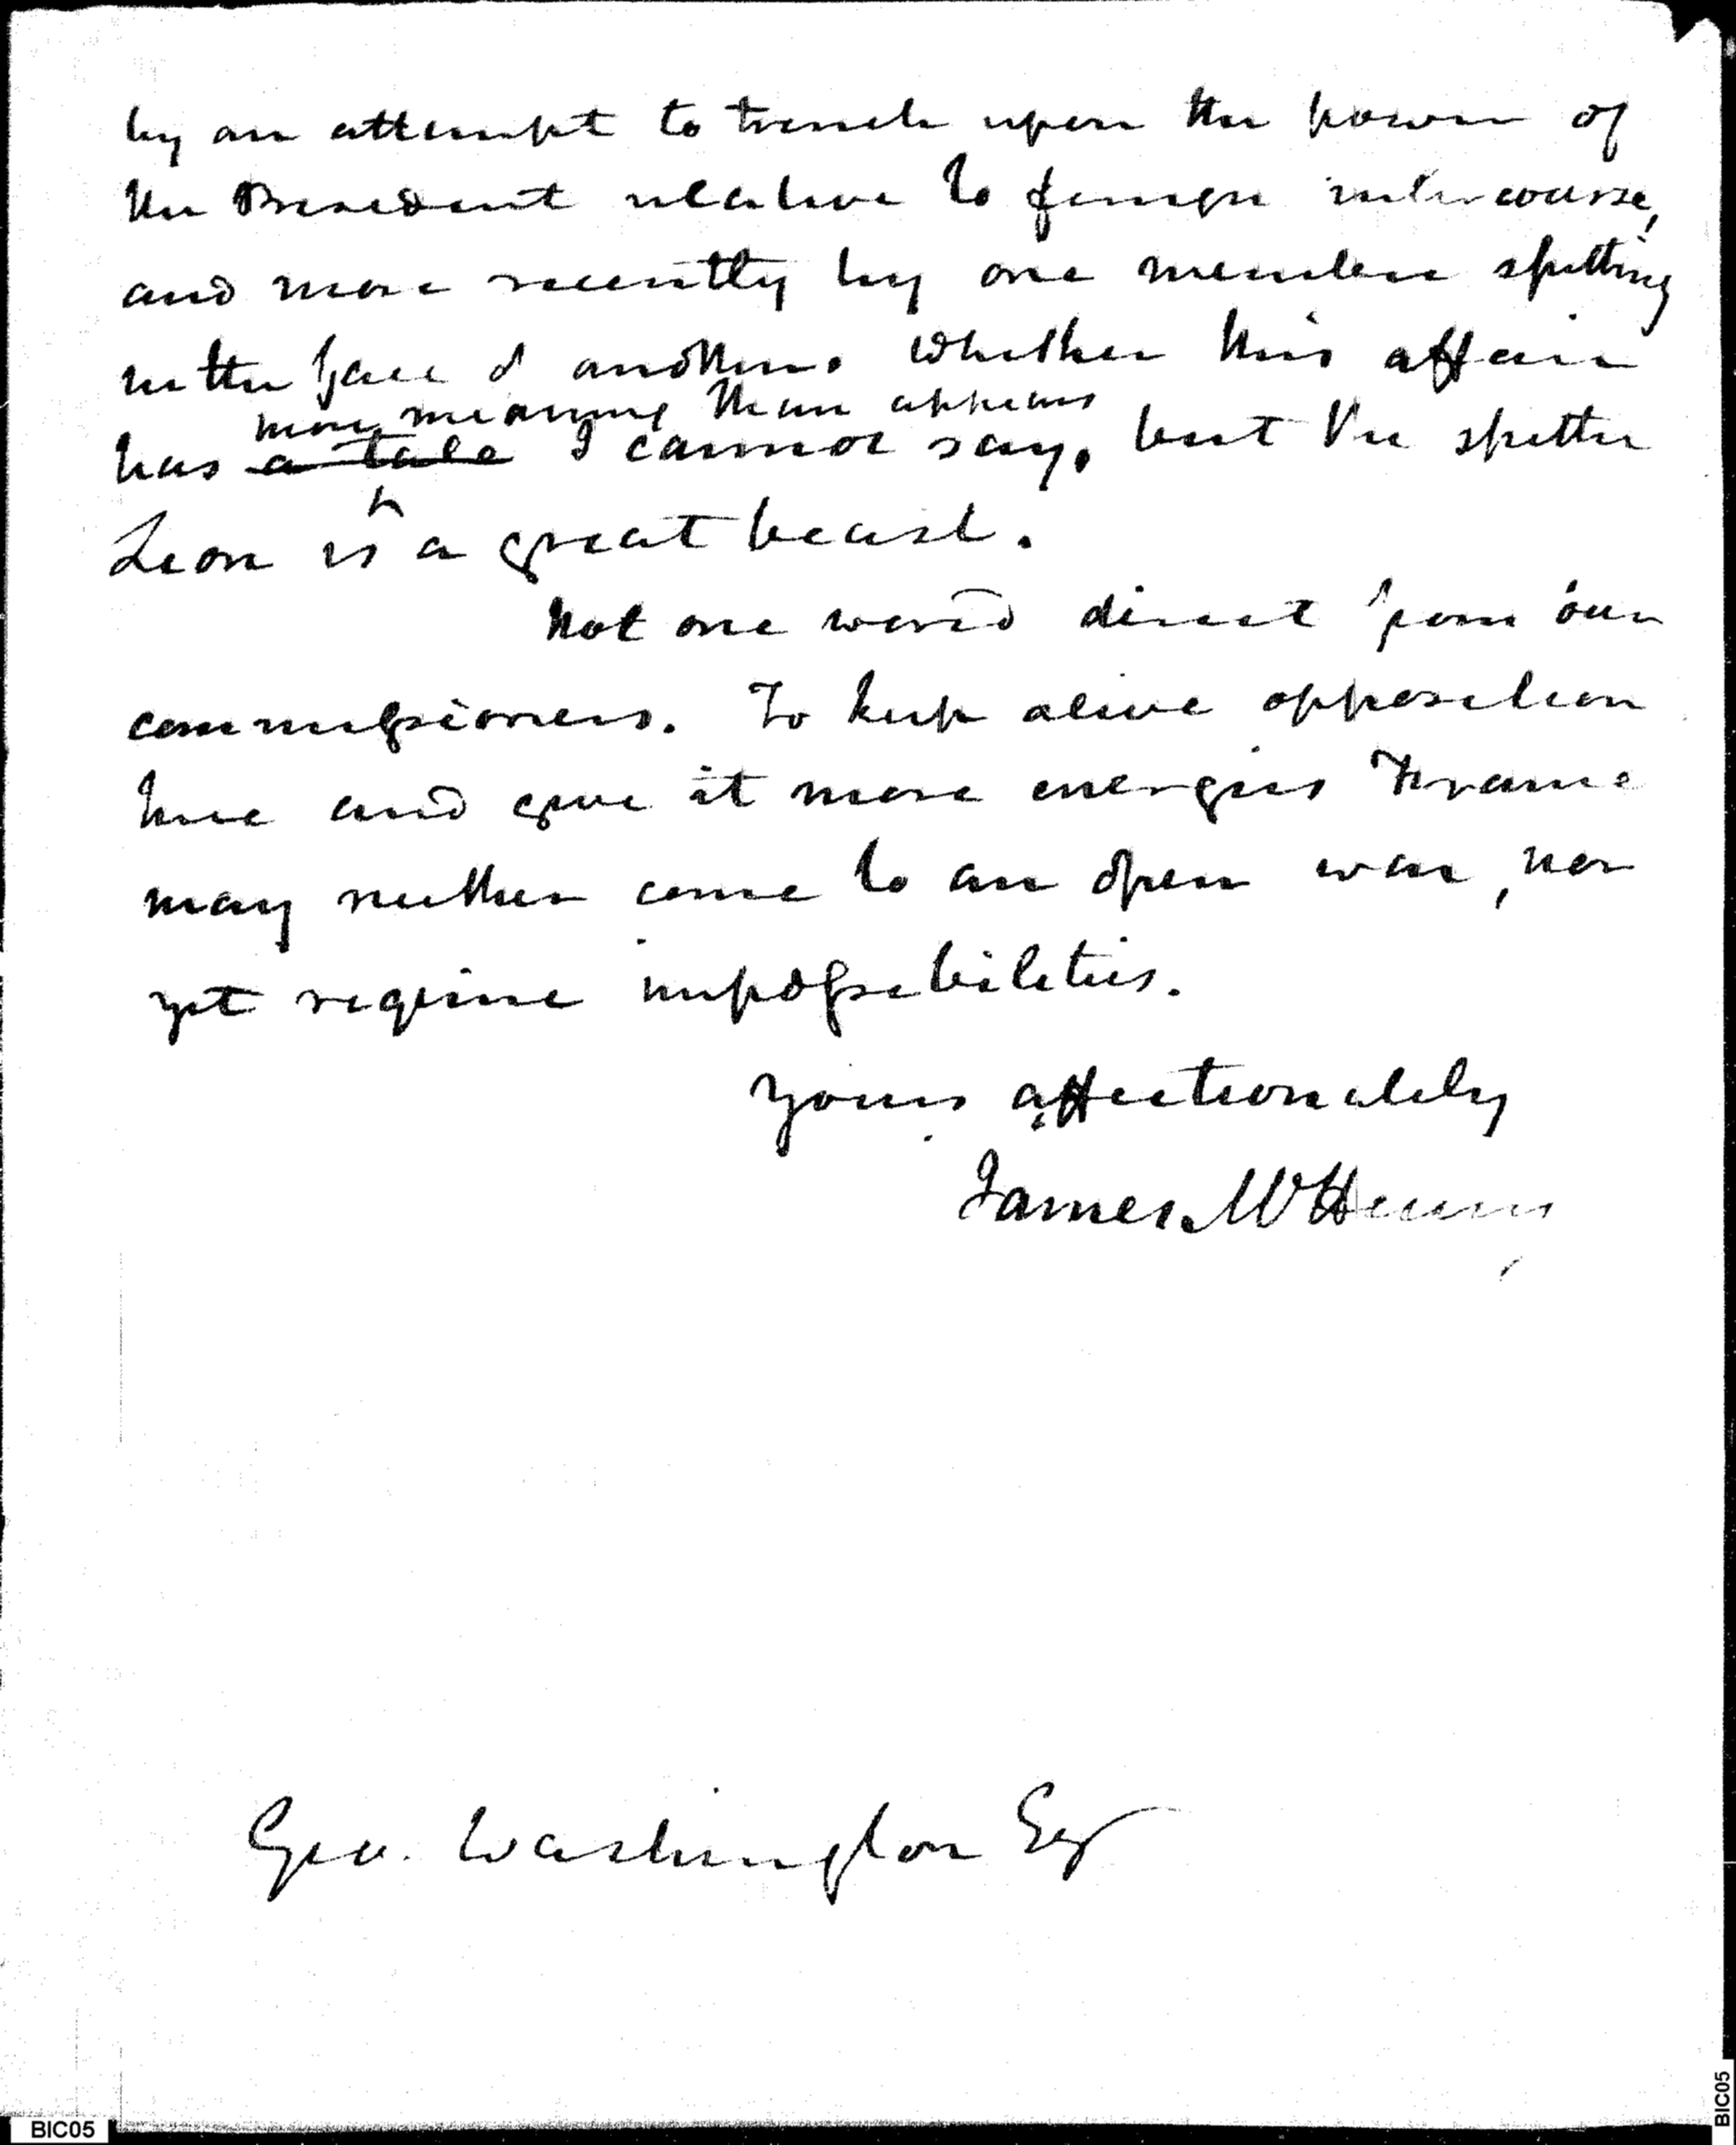 by an attempt to trench upon the power of
the President relative to foreign intercourse,
and more recently by one member spitting
in the face of another. Whether this affair
more meaning than appears
has a tale I cannot say, but the spitter
Leon is a great beast.
Not one word direct from our
commissioners. To keep alive opposition
here and give it more energies France
may neither come to an open war, nor
yet require impossibilities.
Yours affectionately
James McHenry
Geo. Washington Esqr
BIC05
BIC05